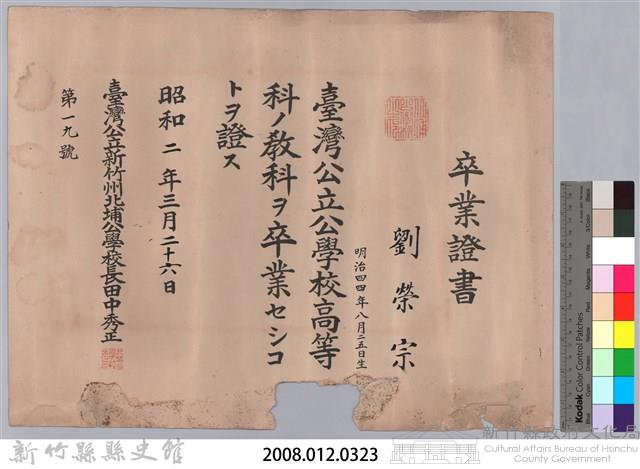 卒業證書
劉榮宗
明治四四年八月二五日生
臺灣公立公學校高等
科ノ教科ヲ卒業セシコ
トヲ證ス
昭和二年三月二十六日
臺灣公立新竹州北埔公學校長田中秀正
第一九號
新竹縣縣史館
2008.012.0323
新竹縣政府文化局
Cultural Affairs Bureau of Hsinchu
County Government
Kodak Color Control Patches
Blue
Cyan
Green
Yellow
Red
Magenta
White
3/Color
Black